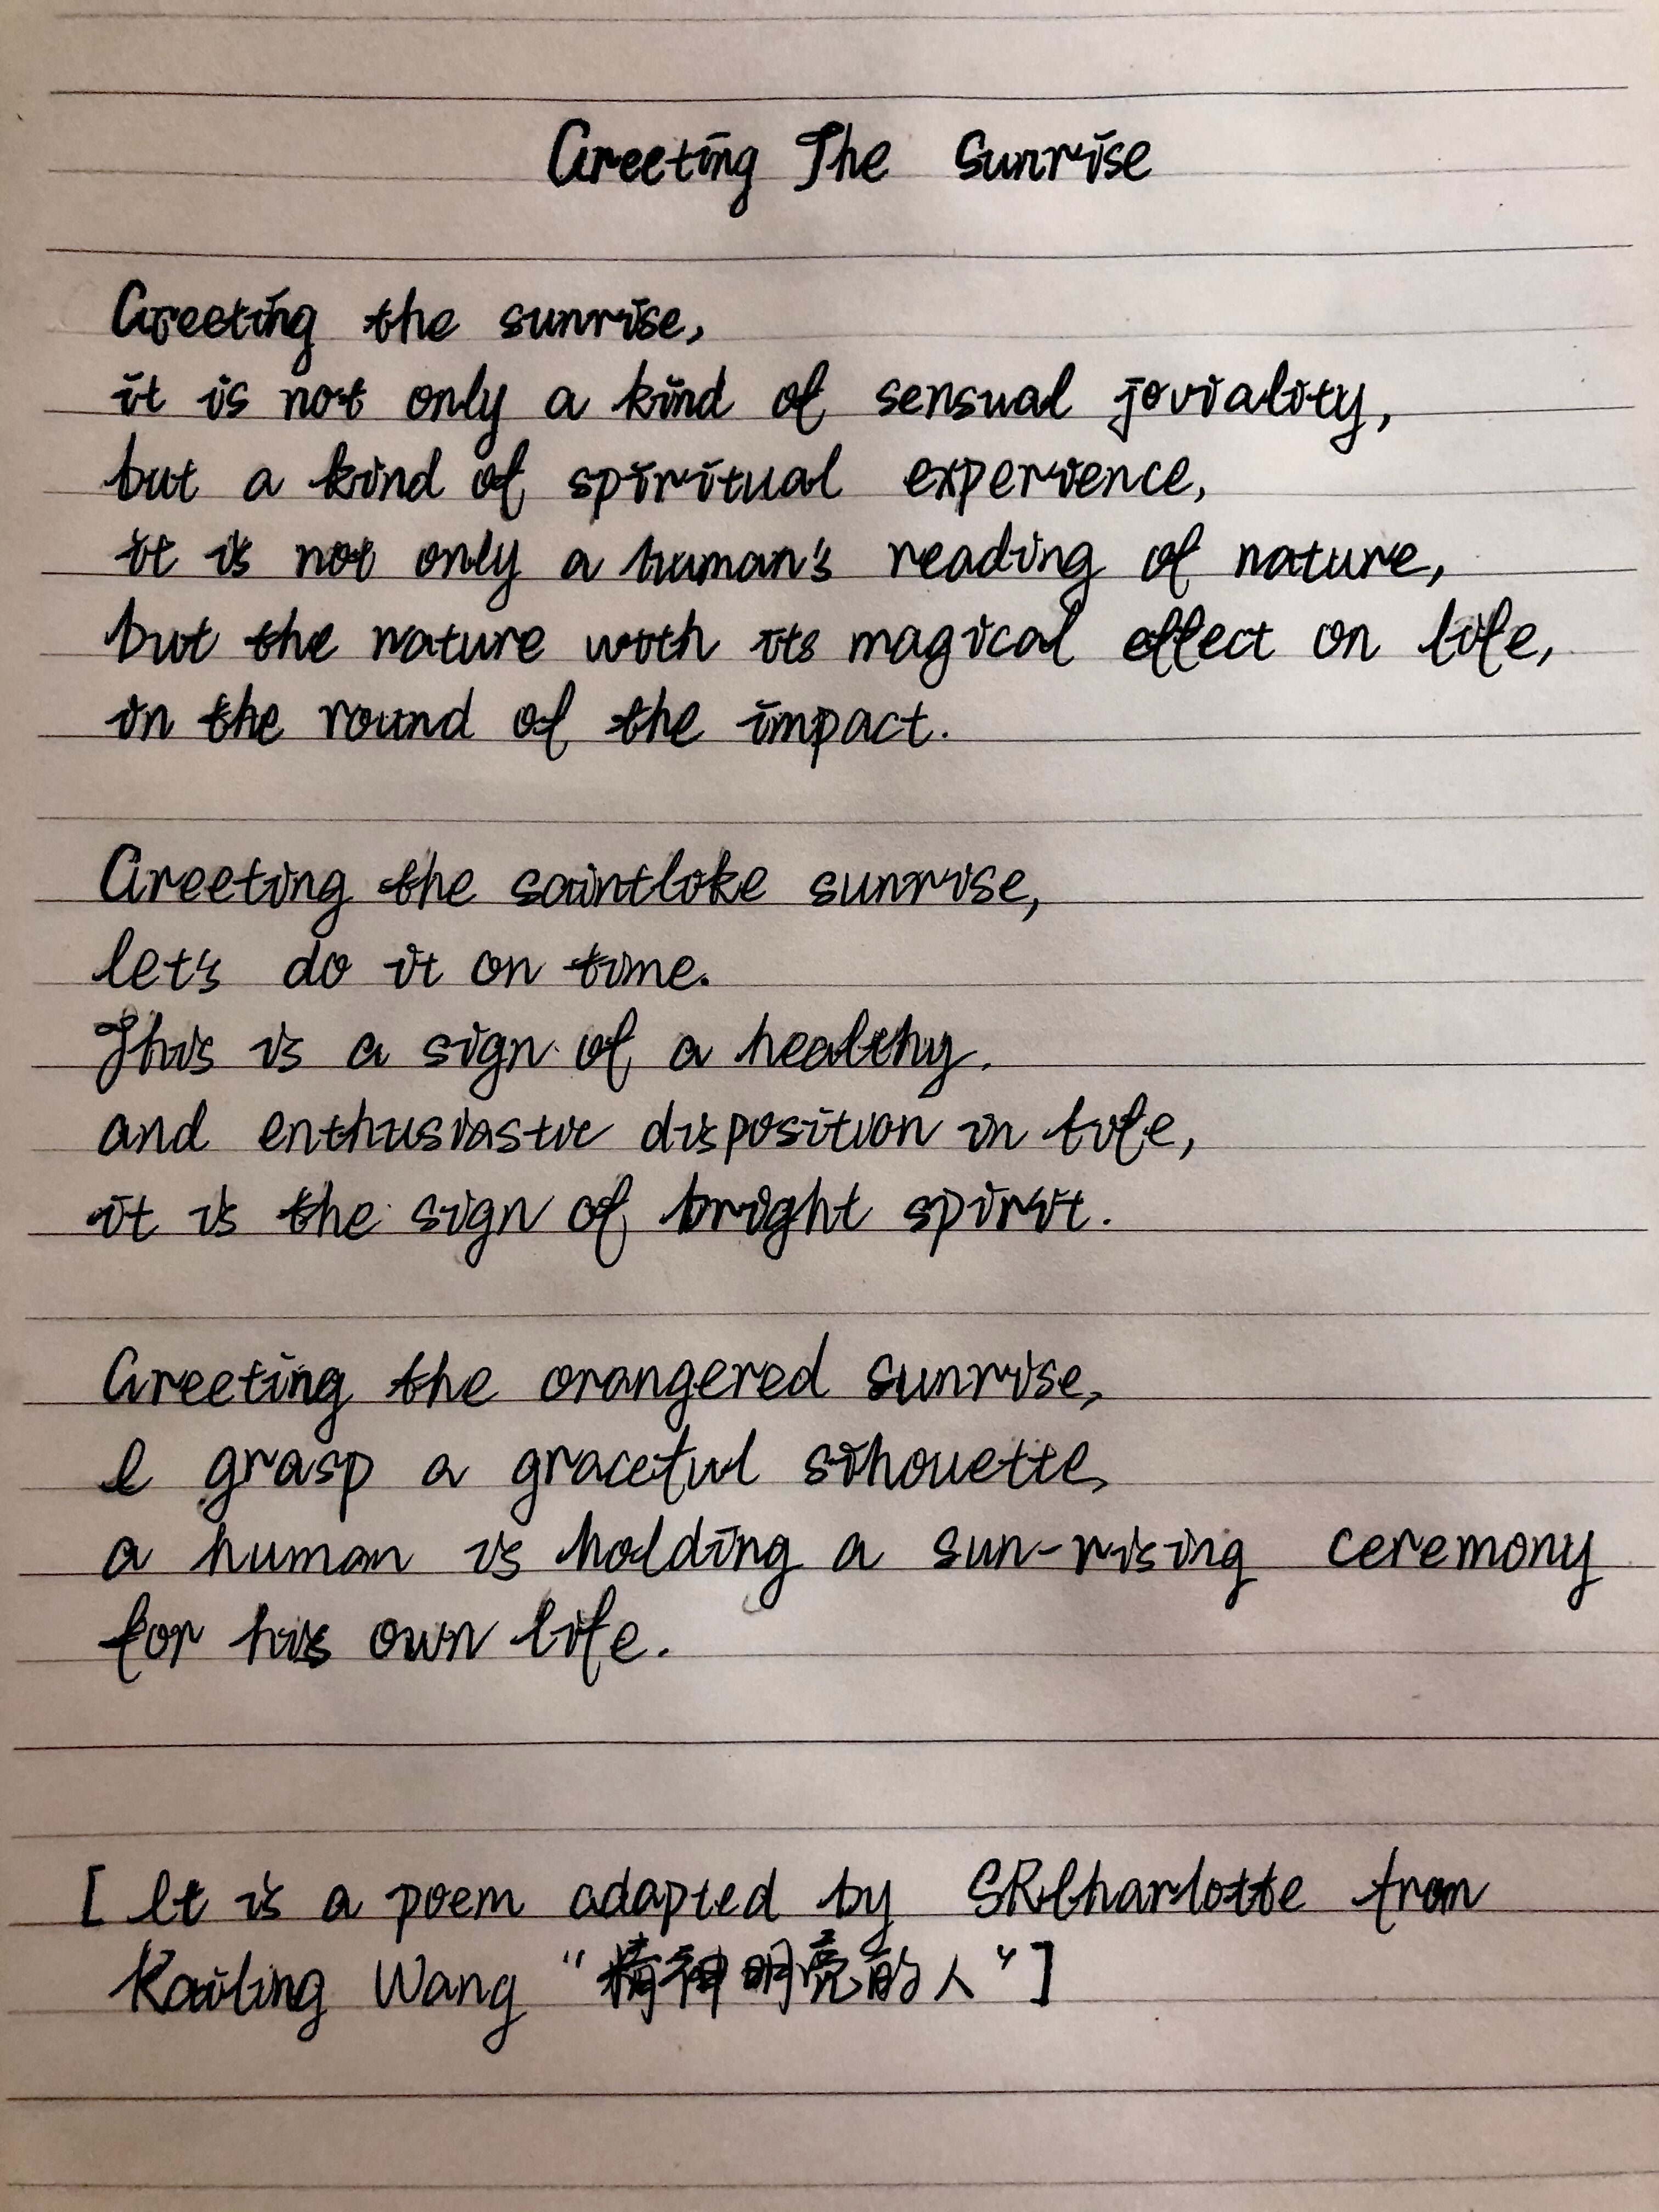 Greeting The Sunrise
Greeting the sunrise,
it is not only a kind of sensual joviality,
but a kind of spiritual experience,
it is not only a human's reading of nature,
but the nature with its magical effect on life,
in the round of the impact.
Greeting the saintlike sunrise,
let's do it on time.
This is a sign of a healthy
and enthusiastic disposition in life,
it is the sign of bright spirit.
Greeting the orangered sunrise,
I grasp a graceful sihouette,
a human is holding a sun-rising ceremony
for his own life.
[ It is a poem adapted by SRCharlotte from
Kailing Wang "精神明亮的人"]